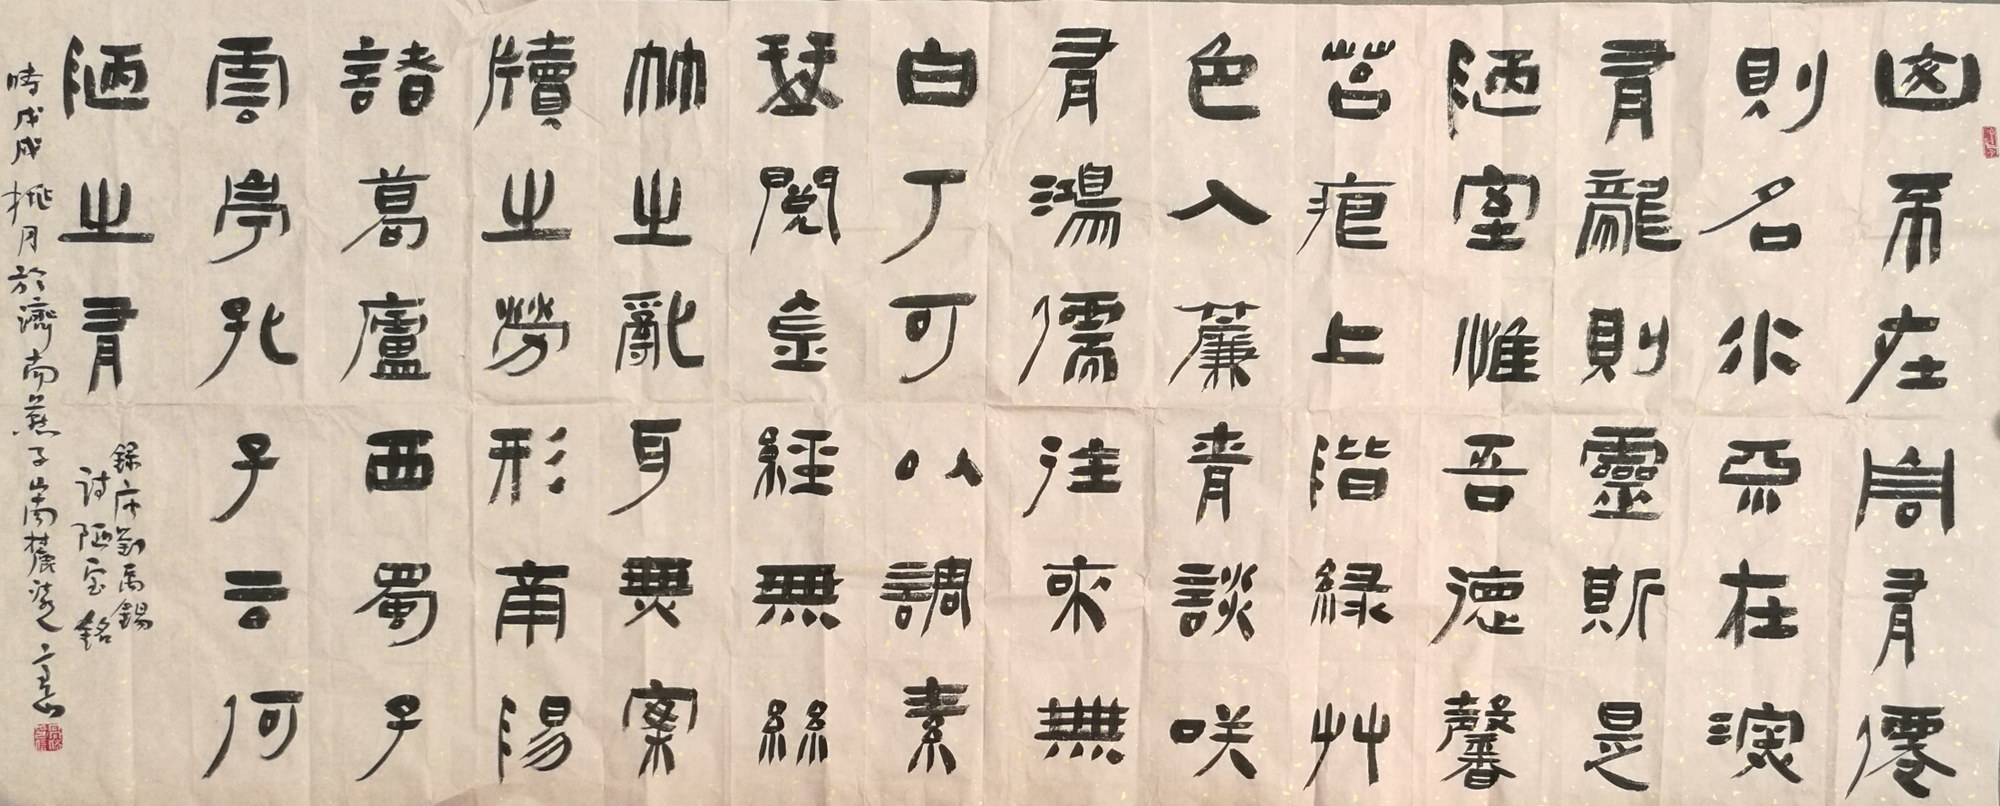 山不在高有僊
則名水不在深
有龍則靈斯是
陋室惟吾德馨
苔痕上階綠艸
色入簾青談咲
有鴻儒往來無
白丁可以調素
琴閱金經無絲
竹之亂耳無案
牘之勞形南陽
諸葛廬西蜀子
雲亭孔子云何
陋之有
錄唐劉禹錫
詩陋室銘
時戊戌桃月於濟南燕子山南麓